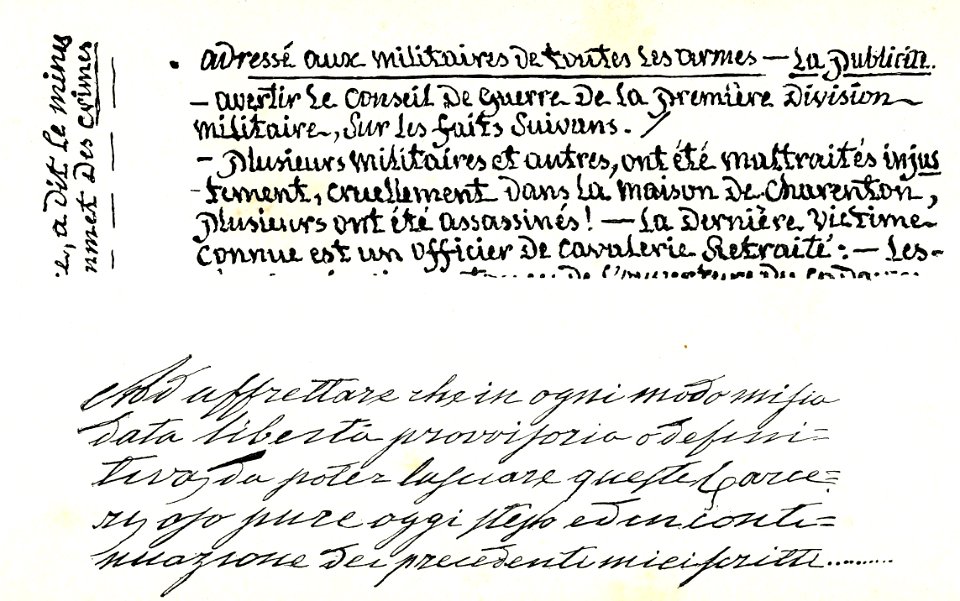 adressé aux militaires de toutes les armes — La publicin.
— avertir le conseil de guerre de la première Division
militaire, sur les faits suivans. /
— plusieurs militaires et autres, ont été maltraités injus
-tement, cruellement dans la maison de charenton,
plusieurs ont été assassinés! — La Dernière victime
connue est un officier de cavalerie Retraité: — Les-
, a dit le minis
met des crimes
Ad affrettare che in ogni modo mi sia
data libertà provvisoria o defini=
tiva, da poter lasciare queste Carce=
ri, oso pure oggi stesso ed in conti=
nuazione dei precedenti miei scritti..........